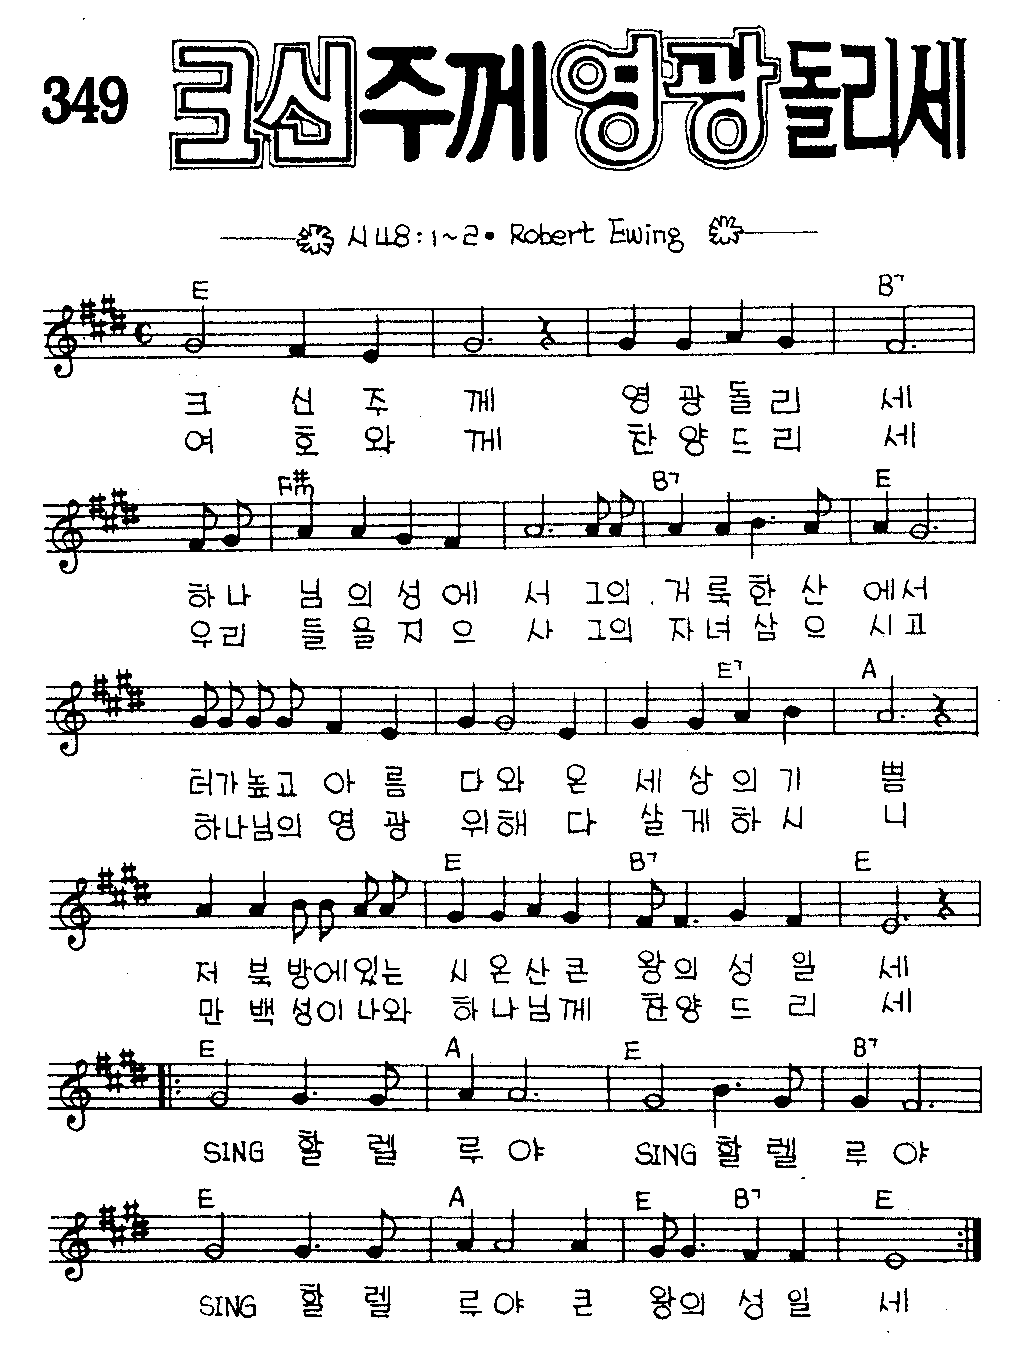 349 크신주께영광돌리세
시 48:1~2 • Robert Ewing
E B7
크 신 주 께 영 광 돌 리 세
여 호 와 께 찬 양 드 리 세
F#m B7 E
하나 님 의 성 에 서 그의 거 룩 한 산 에서
우리 들 을 지 으 사 그의 자 녀 삼 으 시고
E7 A
터가높고 아 름 다와 온 세 상 의 기 쁨
하나님의 영 광 위해 다 살 게 하 시 니
E B7 E
저 북 방에있는 시 온 산 큰 왕의 성 일 세
만 백 성이나와 하 나 님 께 찬양 드 리 세
E A E B7
SING 할 렐 루 야 SING 할 렐 루 야
E A E B7 E
SING 할 렐 루 야 큰 왕의 성 일 세